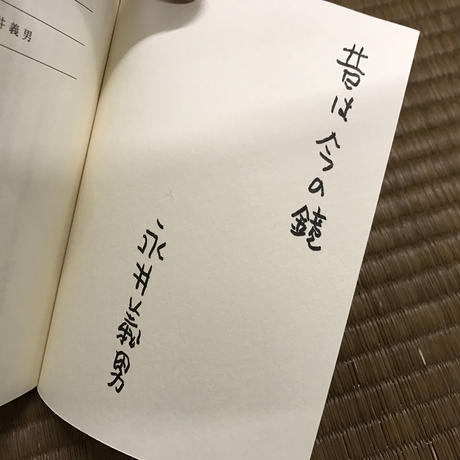 昔は今の鏡
永井義男
井義男